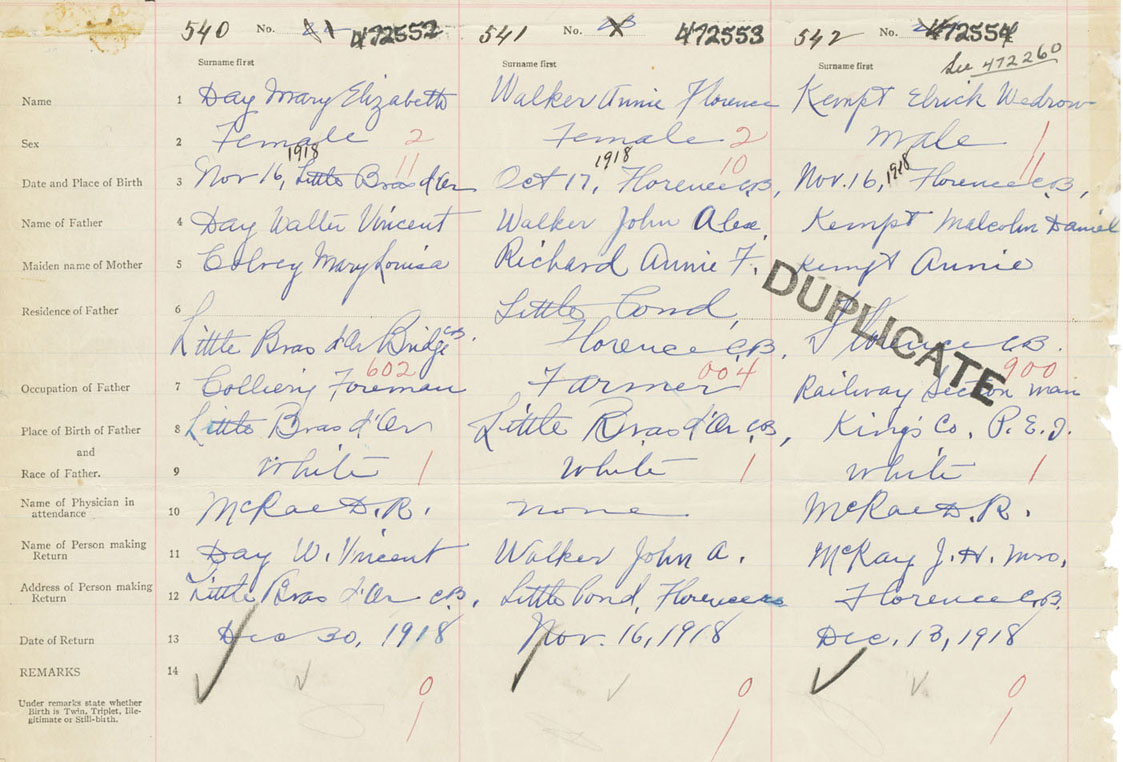 540 No. 472552 541 No. 472553 542 No. 472554
Surname first Surname first Surname first See 472260
Name 1 Day Mary Elizabeth Walker Annie Florence Kempt Elrick Wedrow
Sex 2 Female 2 Female 2 Male 1
1918 11 1918 10 1918 11
Date and Place of Birth 3 Nov 16, Little Bras d'Or Oct 17, Florence C.B, Nov. 16, Florence C.B,
Name of Father 4 Day Walter Vincent Walker John Alex. Kempt Malcolm Daniel
Maiden name of Mother 5 Mary Louisa Richard Annie F. Kempt Annie
DUPLICATE
Residence of Father 6 Little Pond, Florence C.B.
Little Bras d'Or Bridge C.B. Florence C.B.
602 004 900
Occupation of Father 7 Colliery Foreman Farmer Railway Section man
Place of Birth of Father 8 Little Bras d'Or Little Bras d'Or C.B, King's Co, P.E.I.
and
Race of Father. 9 White 1 White 1 White 1
Name of Physician in
attendance 10 McRae D.R. none McRae D.R.
Name of Person making
Return 11 Day W. Vincent Walker John A. McKay J.H. Mrs.
Address of Person making
Return 12 Little Bras d'Or C.B. Little Pond, Florence C.B. Florence C.B.
Date of Return 13 Dec 30, 1918 Nov. 16, 1918 Dec. 13, 1918
REMARKS 14
0 0 0
Under remarks state whether
Birth is Twin, Triplet, Ille-
gitimate or Still-birth.
1 1 1